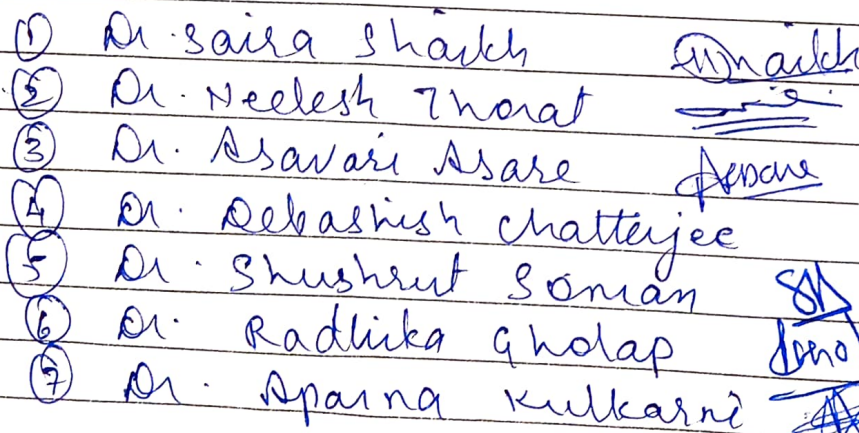 ① Dr. Saira Shaikh Shaikh
② Dr. Neelesh Thorat
③ Dr. Asavari Asare
④ Dr. Debashish Chatterjee
⑤ Dr. Shushrut Soman
⑥ Dr. Radhika Gholap
⑦ Dr. Aparna Kulkarni